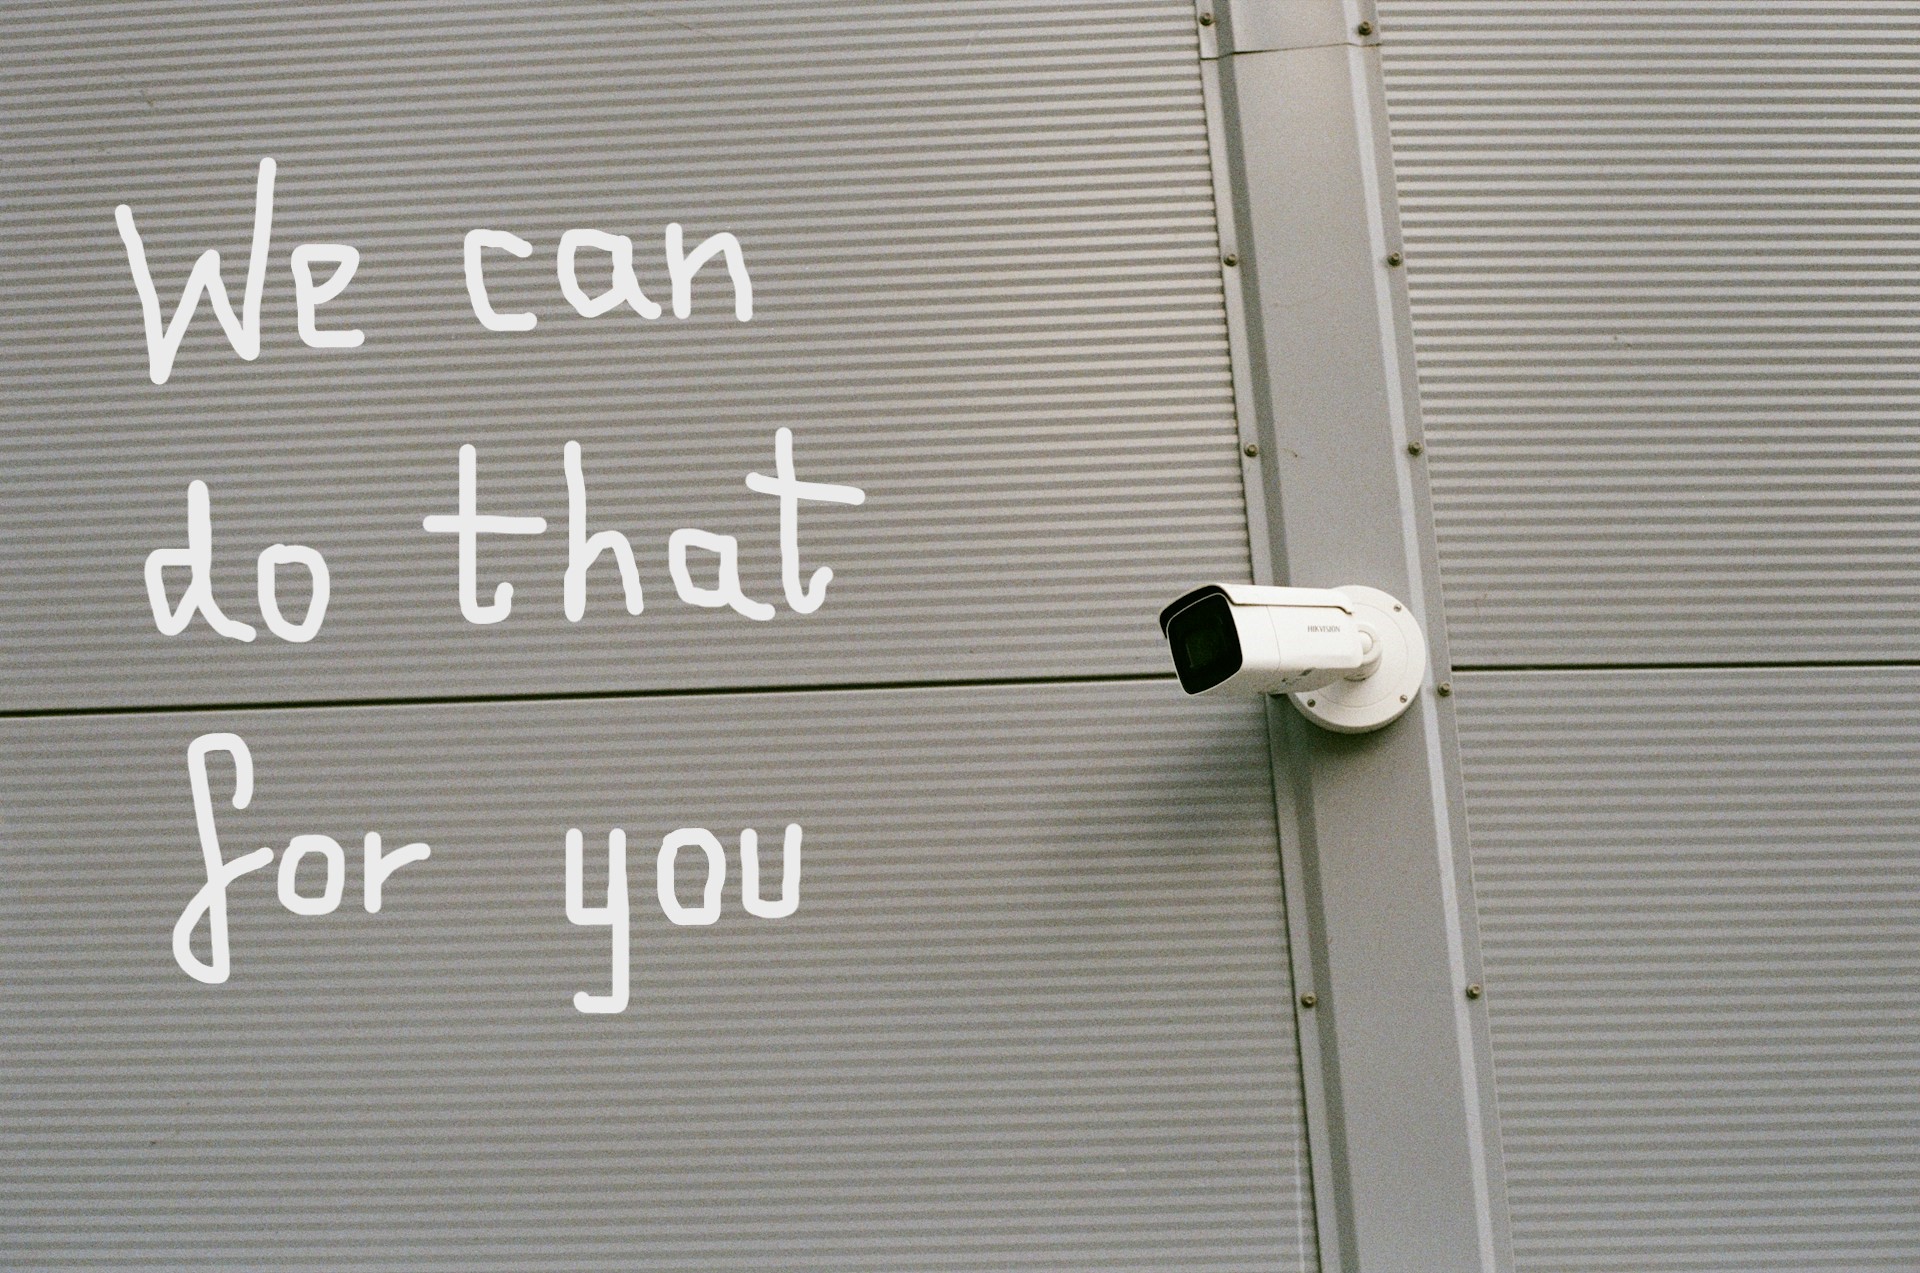 We can
do that
for you
HIKVISION